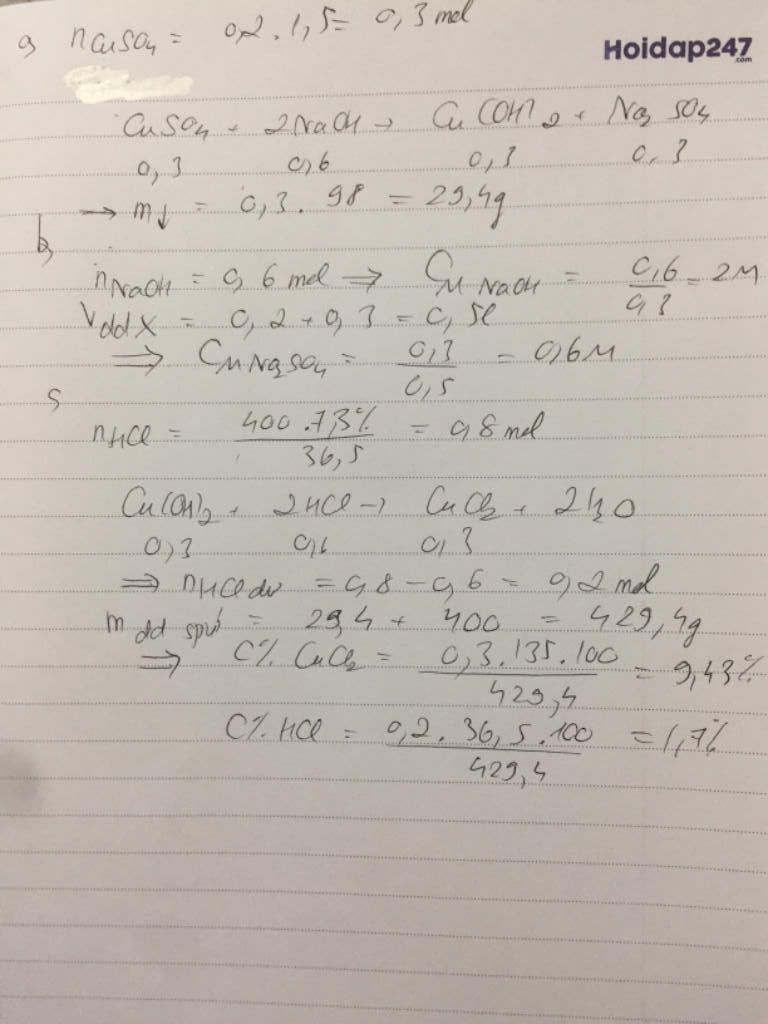 a) nCuSO4 = 0,2.1,5 = 0,3 mol
Hoidap247
.com
CuSO4 + 2NaOH → Cu(OH)2 + Na2SO4
0,3 0,6 0,3 0,3
→ m↓ = 0,3.98 = 29,4g
b)
nNaOH = 0,6 mol ⇒ CM NaOH = 0,6/0,3 = 2M
Vdd X = 0,2 + 0,3 = 0,5l
⇒ CM Na2SO4 = 0,3/0,5 = 0,6M
c)
nHCl = 400.7,3%/36,5 = 0,8 mol
Cu(OH)2 + 2HCl → CuCl2 + 2H2O
0,3 0,6 0,3
⇒ nHCl dư = 0,8 - 0,6 = 0,2 mol
m dd spư = 29,4 + 400 = 429,4g
⇒ C% CuCl2 = 0,3.135.100/429,4 = 9,43%
C% HCl = 0,2.36,5.100/429,4 = 1,7%